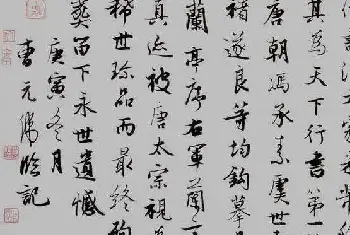 其為天下行書第一
唐朝馮承素虞世
褚遂良等均鈎摹
蘭亭序右軍蘭
真迹被唐太宗視
稀世珍品而最終殉
葬留下永世遺憾
庚寅冬月
曹元臨記